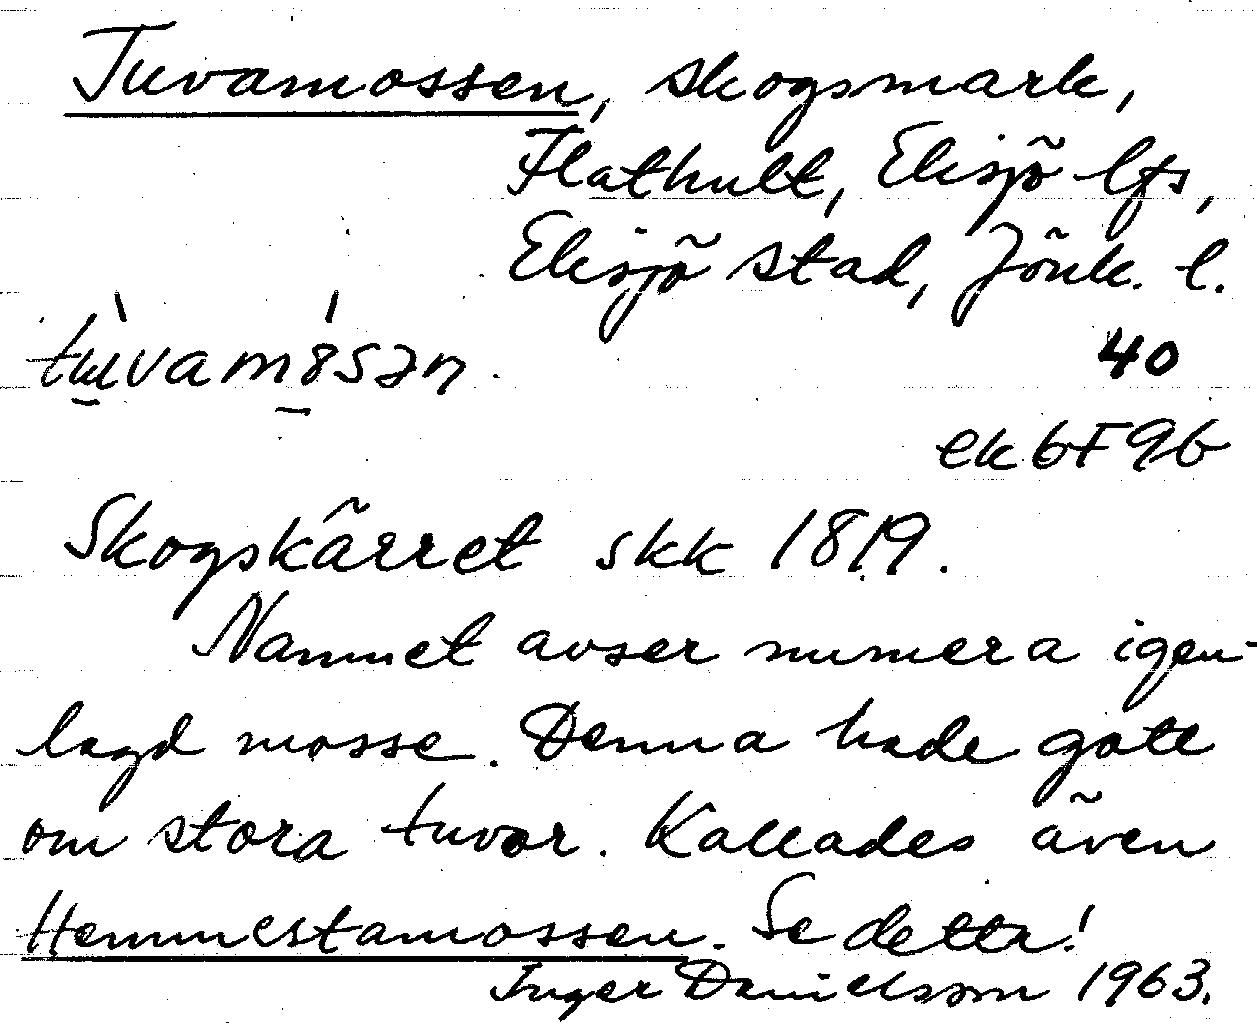 Tuvamossen, skogsmark,
Flathult, Eksjö lfs,
Eksjö stad, Jönk. l.
40
ek 6F9b
Skogskärret skk 1819.
Namnet avser numera igen-
lagd mosse. Denna hade gott
om stora tuvor. Kallades även
Hemmestamossen. Se detta!
Inger Danielsson 1963.